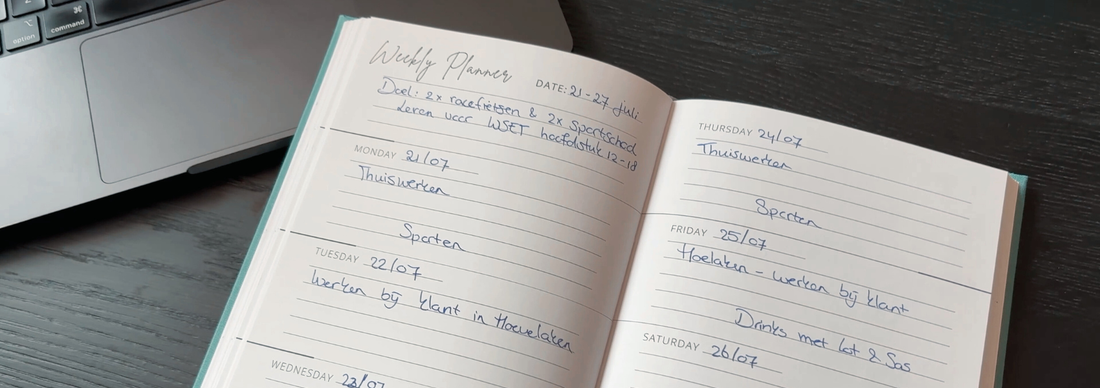 ⌘
⌥
command
option
command
Weekly Planner
DATE: 21-27 juli
Doel: 2x racefietsen & 2x Sportschool
Leren voor WSET hoofdstuk 12-18
MONDAY 21/07
Thuiswerken
Sporten
TUESDAY 22/07
Werken bij klant in Hoevelaken
WEDNESDAY 23/07
THURSDAY 24/07
Thuiswerken
Sporten
FRIDAY 25/07
Hoelaken - werken bij klant
Drinks met Lot & Sas
SATURDAY 26/07